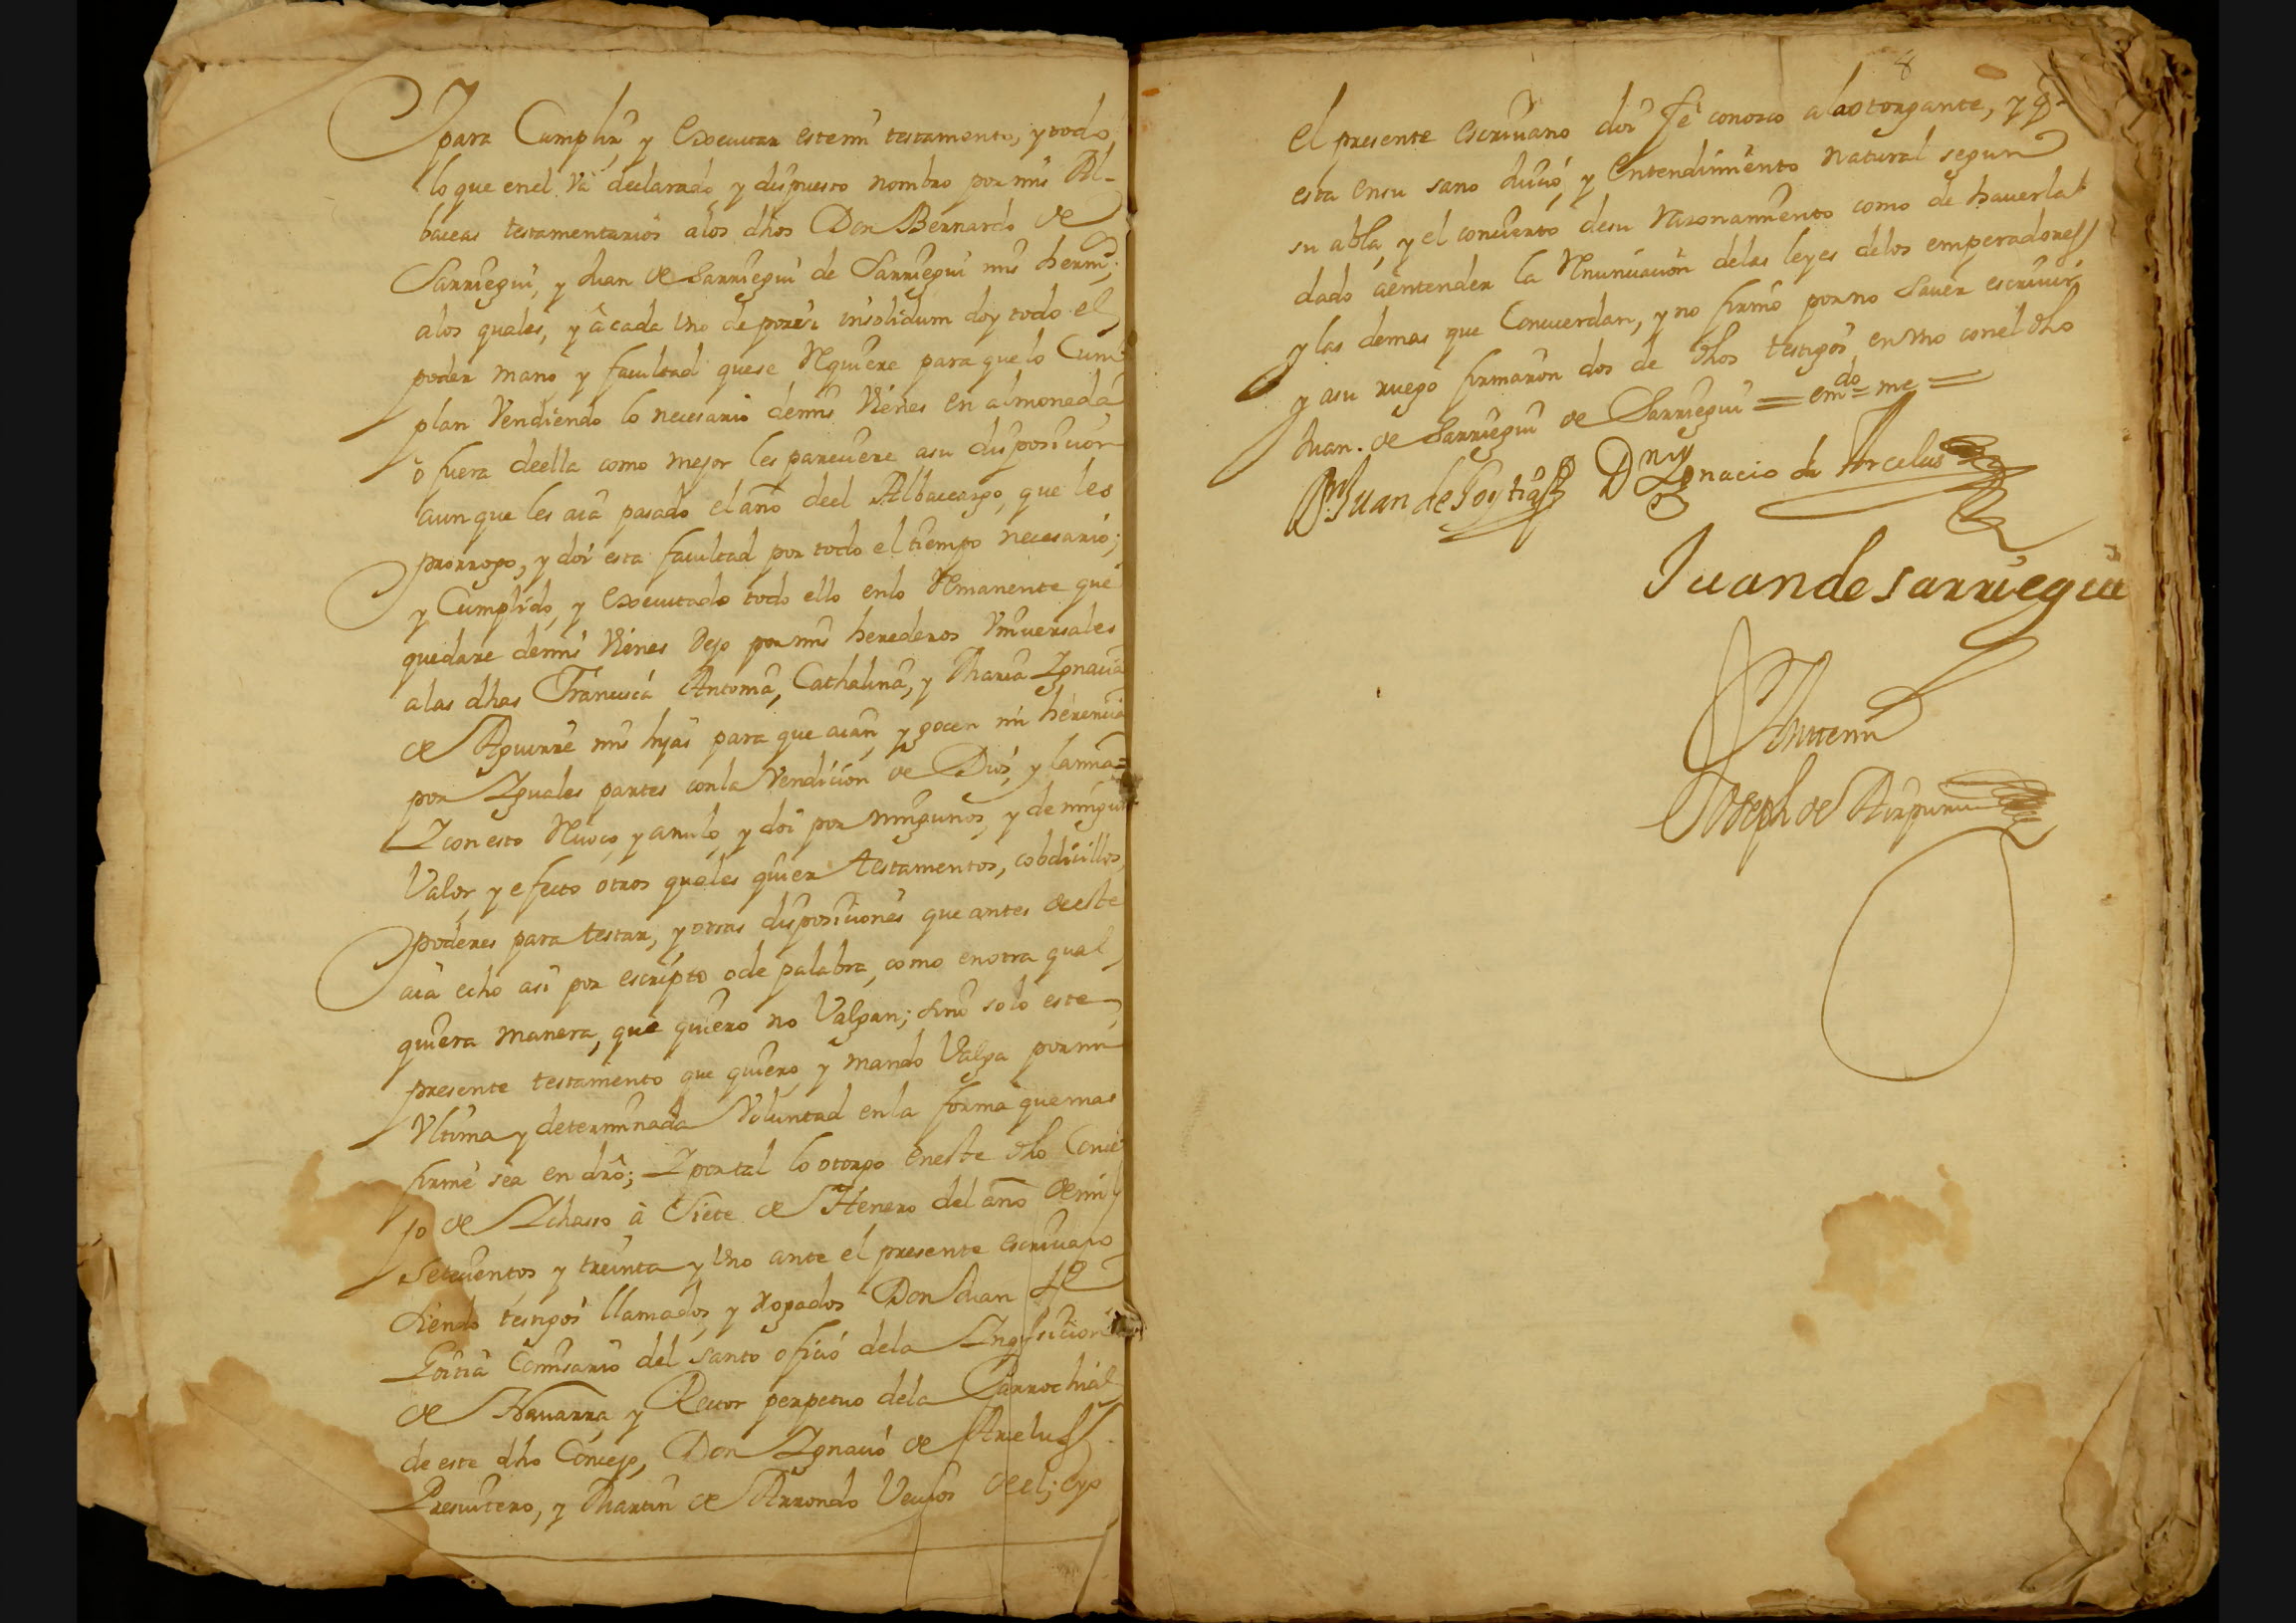 Y para Cumplir y Executar este mi testamento, y todo
lo que en el va declarado, y dispuesto nombro por mis Al-
baceas testamentarios a los dhos Don Bernardo de
Sarriegui, y Juan de Sarriegui de Sarriegui mis herm.s
a los quales, y à cada Uno de por si insolidum doy todo el
poder mano y facultad que se Requiere para que lo Cum
plan Vendiendo lo necesario de mis Vienes en almoneda
ò fuera de ella como mejor les pareciere a su disposicion
aunque les aia pasado el año de el Albaceazgo, que les
prorrogo, y doi esta facultad por todo el tiempo necesario;
y Cumplido, y Executado todo ello en lo Remanente que
quedare de mis Vienes Dejo por mis herederos Universales
a las dhas Francisca Antonia, Cathalina, y Maria Ygnacia
de Aguirre mis hijas para que aian, y gocen mi herencia
por Yguales partes con la Vendicion de Dios, y la mia=
Y con esto Revoco, y anulo, y doi por ningunos, y de ningun
Valor, y efecto otros quales quier testamentos, cobdicillos,
poderes para testar, y otras disposiciones que antes de este
aia echo asi por escripto o de palabra, como en otra qual
quiera manera, que quiero no Valgan; sino solo este
presente testamento que quiero, y mando Valga por mi
Ultima y determinada Voluntad en la forma que mas
firme sea en dro; Y por tal lo otorgo en este dho Conce
jo de Ychasso à Siete de Henero del año de mil
Setecientos y treinta y Uno ante el presente escrivano
Siendo testigos llamados, y Rogados Don Juan de
Goitia Comisario del Santo oficio de la Ynqisicion
de Navarra, y Rector perpetuo de la Parrochial
de este dho Concejo, Don Ygnacio de Arceluss
Presvitero, y Martin de Arrondo Vecinos de el; e yo
8
el presente escrivano doi fè conosco a la otorgante, y q.e
esta en su sano Juicio, y Entendimiento natural segun
su abla, y el concierto de su Razonamiento como de haverla
dado à entender la Renunciacion de las leyes de los emperadoress
y las demas que Concuerdan, y no firmò por no Saver escrivir
y a su ruego firmaron dos de dhos testigos en Uno con el dho
Juan de Sarriegui de Sarriegui = em.do = me =
Dn Juan de Goytia Dn Ygnacio de Arcelus
Juan de Sarriegui
Ante mi
Joseph de Aizpuru